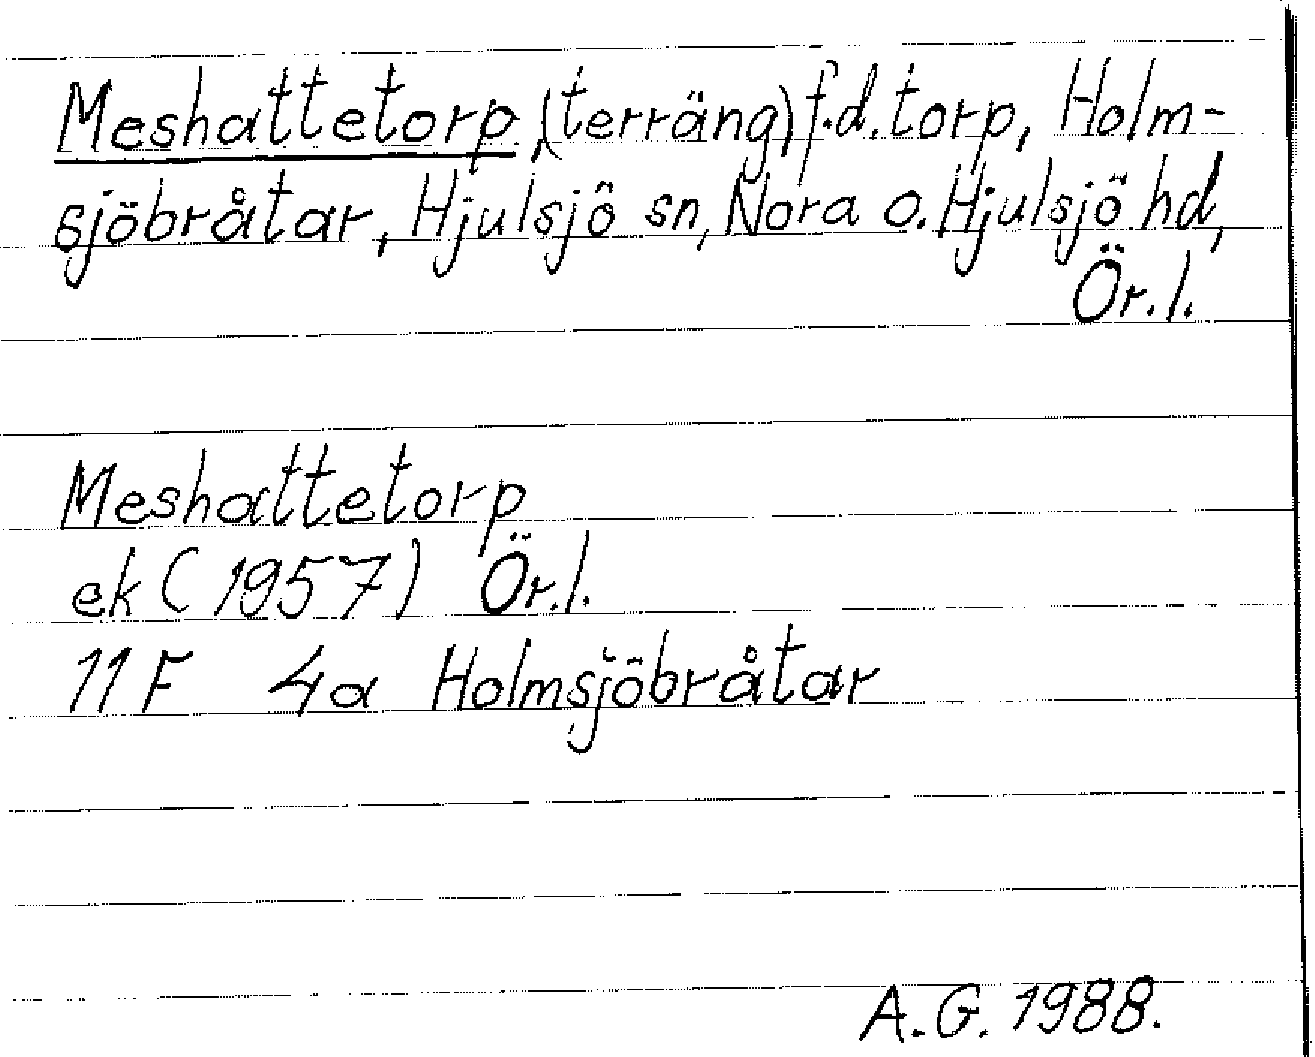 Meshattetorp, (terräng) f.d. torp, Holm-
sjöbråtar, Hjulsjö sn, Nora o. Hjulsjö hd,
Ör. l.
Meshattetorp
ek (1957) Ör. l.
11F 4a Holmsjöbråtar
A.G. 1988.